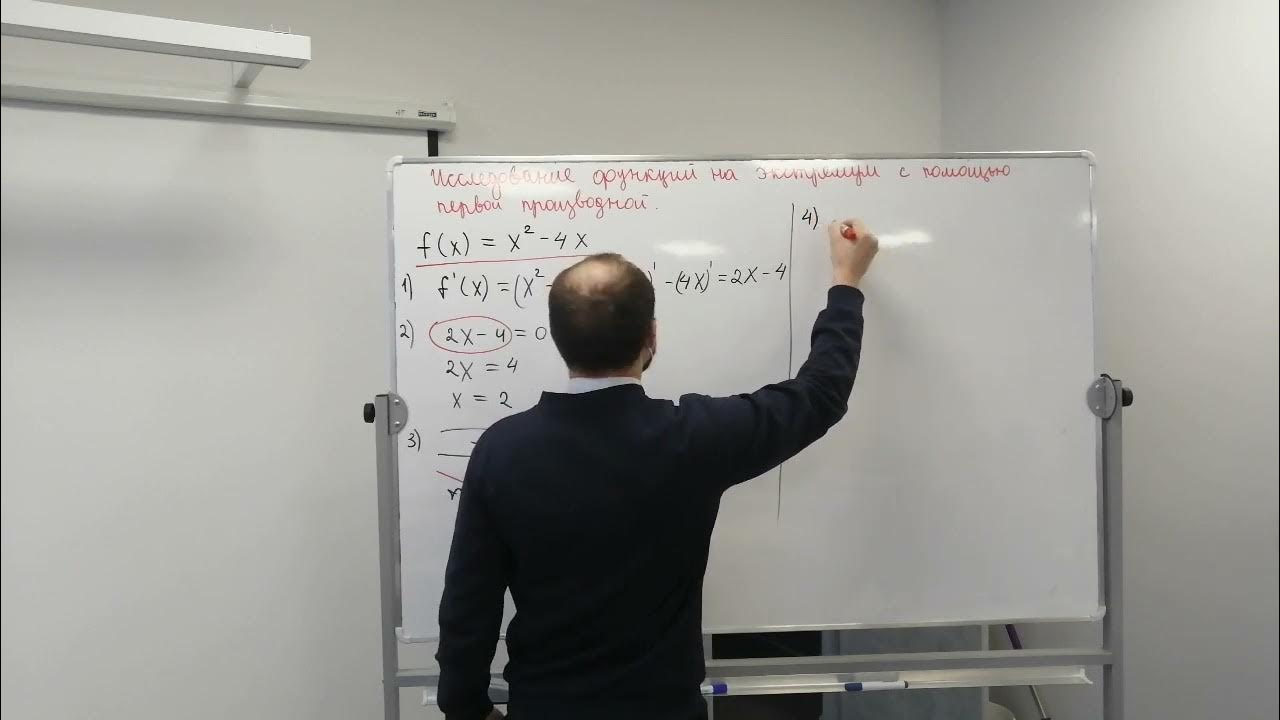 Исследование функций на экстремум с помощью
первой производной.
f(x) = x² - 4x
1) f'(x) = (x² -
)' - (4x)' = 2x - 4
2) 2x - 4 = 0
2x = 4
x = 2
3)
4)